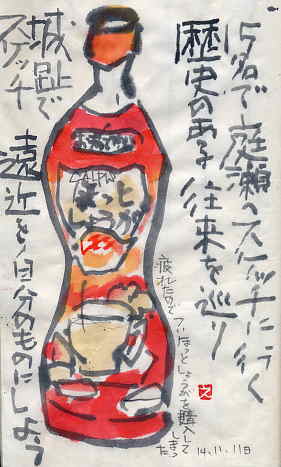 15名で庭瀬へスケッチに行く
歴史のある往来を巡り
城趾で
スケッチ
遠近を自分のものにしよう
CALPIS
ほっと
しょうが
疲れたので
ついほっとしょうがを購入して
しまった
14.11.11日